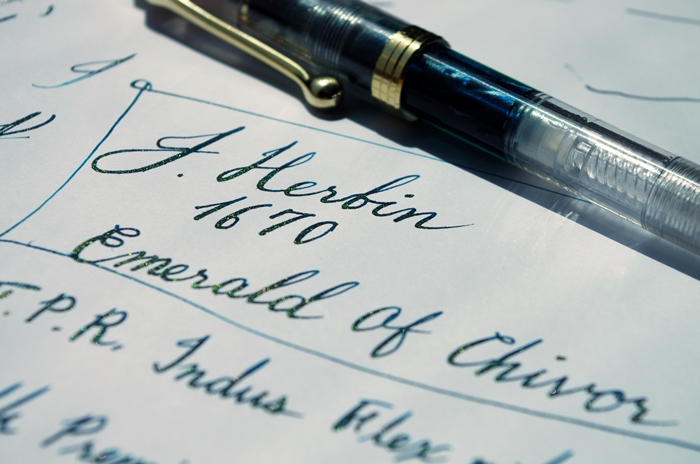 J. Herbin
1670
Emerald of Chivor
F.P.R. Indus Flex